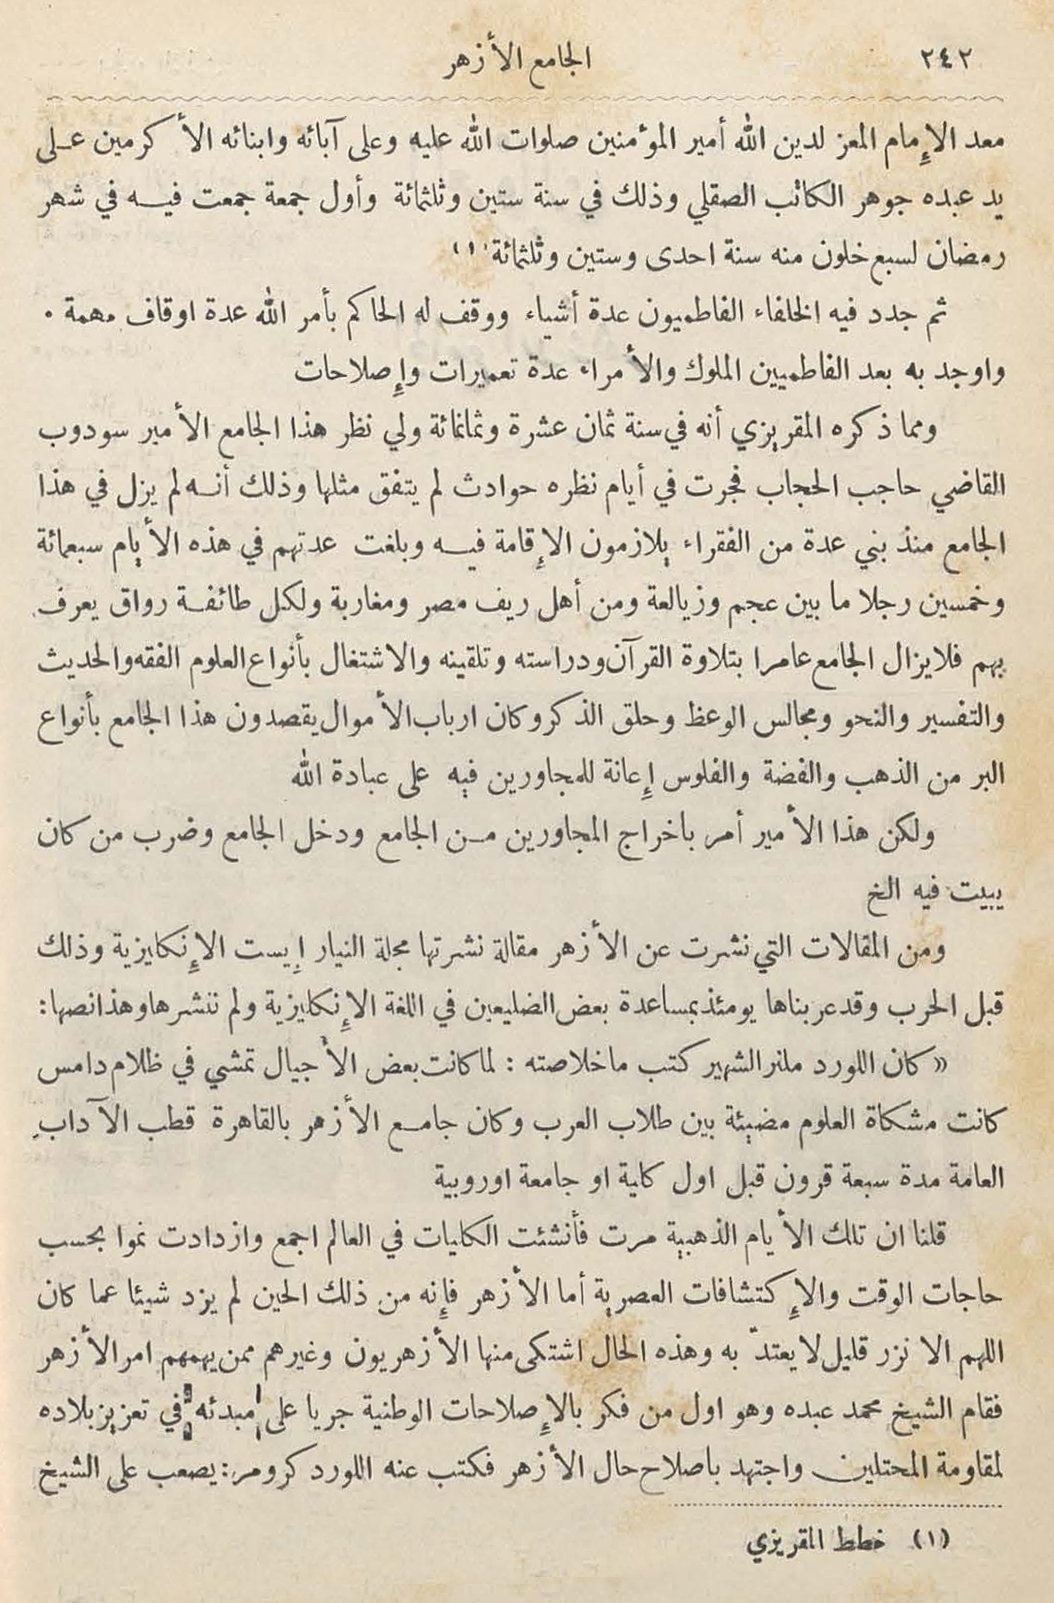 ٢٤٢
الجامع الأزهر
معد الإمام المعز لدين الله أمير المؤمنين صلوات الله عليه وعلى آبائه وابنائه الأكرمين عـلى
يد عبده جوهر الكاتب الصقلي وذلك في سنة ستين وثلثمائة وأول جمعة جمعت فيـه في شهر
رمضان لسبع خلون منه سنة احدى وستين وثلثمائة (١)
ثم جدد فيه الخلفاء الفاطميون عدة أشياء ووقف له الحاكم بأمر الله عدة اوقاف مهمة .
واوجد به بعد الفاطميين الملوك والأمراء عدة تعميرات وإصلاحات
ومما ذكره المقريزي أنه في سنة ثمان عشرة وثمانمائة ولي نظر هذا الجامع الأمير سودوب
القاضي حاجب الحجاب فجرت في أيام نظره حوادث لم يتفق مثلها وذلك أنـه لم يزل في هذا
الجامع منذ بني عدة من الفقراء يلازمون الإقامة فيـه وبلغت عدتهم في هذه الأيام سبعمائة
وخمسين رجلا ما بين عجم وزيالعة ومن أهل ريف مصر ومغاربة ولكل طائفـة رواق يعرف
بهم فلا يزال الجامع عامرا بتلاوة القرآن ودراسته وتلقينه والاشتغال بأنواع العلوم الفقه والحديث
والتفسير والنحو ومجالس الوعظ وحلق الذكر وكان ارباب الأموال يقصدون هذا الجامع بأنواع
البر من الذهب والفضة والفلوس إعانة للمجاورين فيه على عبادة الله
ولكن هذا الأمير أمر باخراج المجاورين مـن الجامع ودخل الجامع وضرب من كان
يبيت فيه الخ
ومن المقالات التي نشرت عن الأزهر مقالة نشرتها مجلة النيار إيست الإنكليزية وذلك
قبل الحرب وقد عربناها يومئذ بمساعدة بعض الضليعين في اللغة الإنكليزية ولم ننشرها وهذا نصها :
« كان اللورد ملنر الشهير كتب ما خلاصته : لما كانت بعض الأجيال تمشي في ظلام دامس
كانت مشكاة العلوم مضيئة بين طلاب العرب وكان جامـع الأزهر بالقاهرة قطب الآداب
العامة مدة سبعة قرون قبل اول كلية او جامعة اوروبية
قلنا ان تلك الأيام الذهبية مرت فأنشئت الكليات في العالم اجمع وازدادت نموا بحسب
حاجات الوقت والإكتشافات العصرية أما الأزهر فإنه من ذلك الحين لم يزد شيئا عما كان
اللهم الا نزر قليل لا يعتدّ به وهذه الحال اشتكى منها الأزهريون وغيرهم ممن يهمهم امر الأزهر
فقام الشيخ محمد عبده وهو اول من فكر بالإصلاحات الوطنية جريا على مبدئه في تعزيز بلاده
لمقاومة المحتلين واجتهد باصلاح حال الأزهر فكتب عنه اللورد كرومر : يصعب على الشيخ
(١) خطط المقريزي